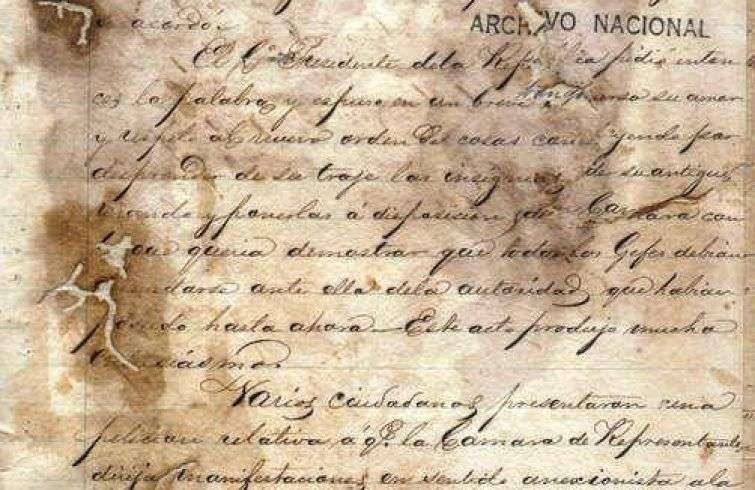 se acordó.
ARCHIVO NACIONAL
El Cº Presidente dela República pidió enton
ces la palabra, y espuso en un breve discurso su amor
y respeto al nuevo orden del cosas concluyendo por
desprender de su traje las insignias de su antiguo
mando y ponerlas á disposicion de la Camara con
que queria demostrar que todos los Gefes debian
ante ella dela autoridad, que habian
hasta ahora — Este acto produjo mucha
Varios ciudadanos presentaron una
peticion relativa á qe. la Camara de Representantes
dirija manifestaciones en sentido anexionista a la